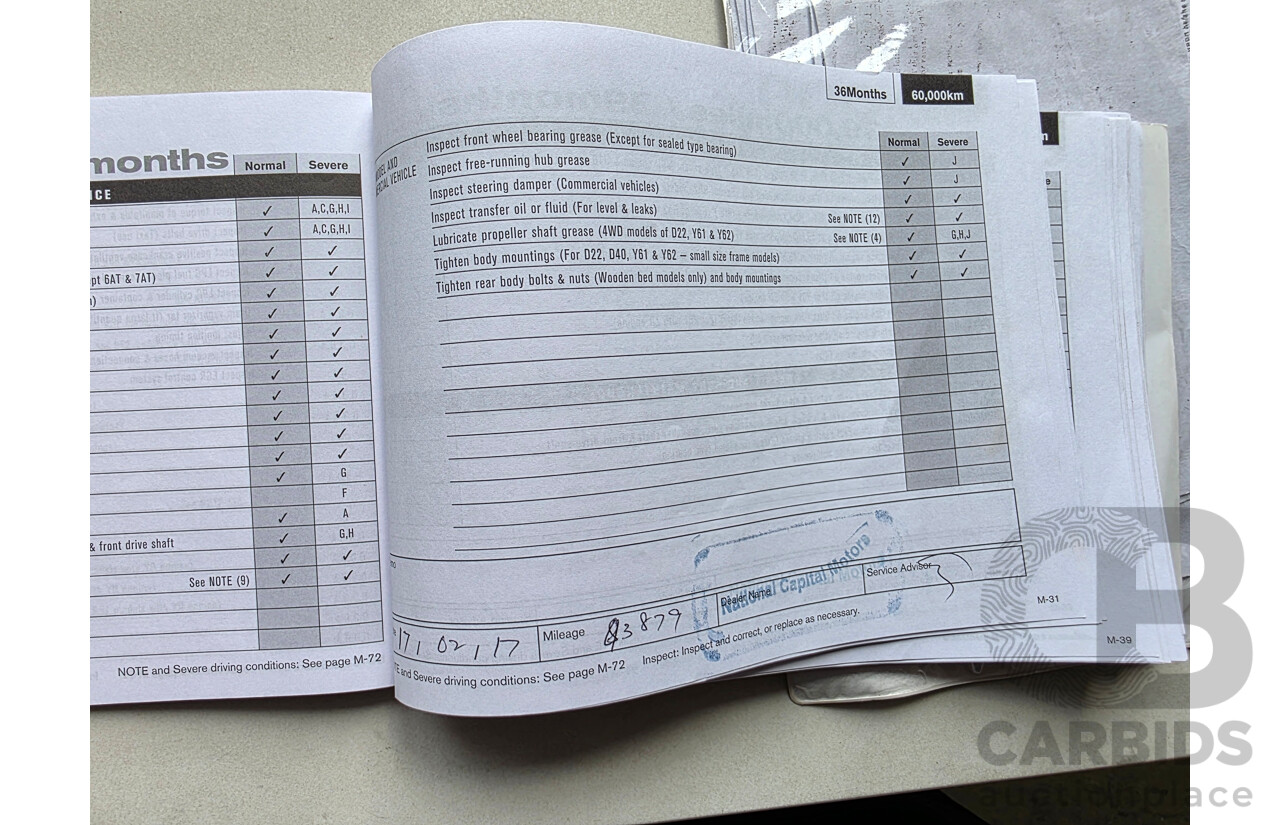 months
Normal
Severe
ICE
✓ A,C,G,H,I
✓ A,C,G,H,I
✓ ✓
pt 6AT & 7AT) ✓ ✓
✓ ✓
✓ ✓
✓ ✓
✓ ✓
✓ ✓
✓ ✓
✓ ✓
✓ ✓
✓ ✓
✓ G
F
✓ A
& front drive shaft ✓ G,H
✓ ✓
See NOTE (9) ✓ ✓
NOTE and Severe driving conditions: See page M-72
36Months 60,000km
Normal Severe
Inspect front wheel bearing grease (Except for sealed type bearing) ✓ J
Inspect free-running hub grease ✓ J
Inspect steering damper (Commercial vehicles) ✓ ✓
Inspect transfer oil or fluid (For level & leaks) See NOTE (12) ✓ ✓
Lubricate propeller shaft grease (4WD models of D22, Y61 & Y62) See NOTE (4) ✓ G,H,J
Tighten body mountings (For D22, D40, Y61 & Y62 – small size frame models) ✓ ✓
Tighten rear body bolts & nuts (Wooden bed models only) and body mountings ✓ ✓
National Capital Motors
17, 02, 17
Mileage 83879
Dealer Name
Service Advisor
and Severe driving conditions: See page M-72
Inspect: Inspect and correct, or replace as necessary.
M-31
M-39
CARBIDS
auctionplace